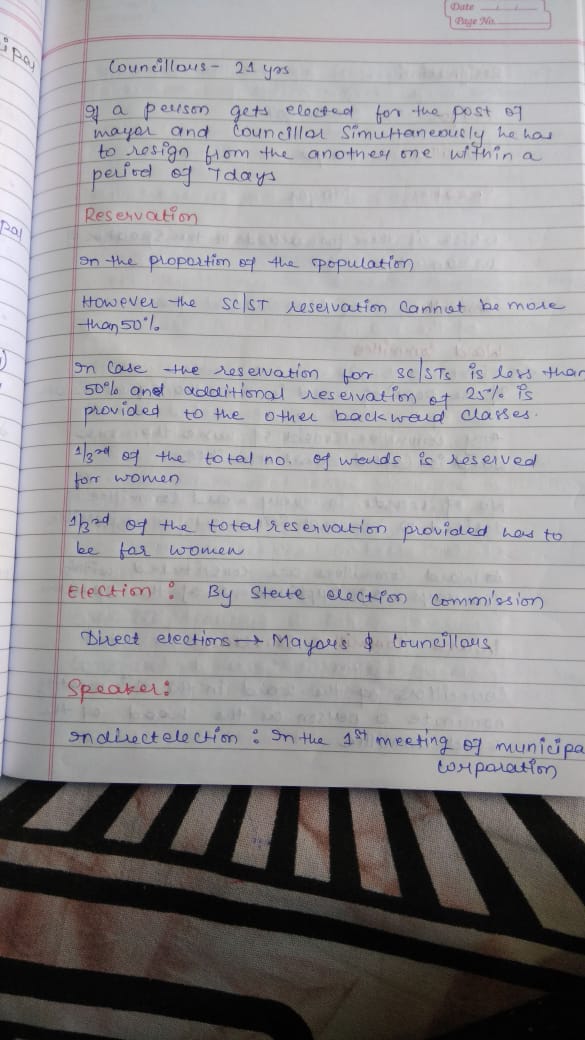 Date
Page No.
Councillors - 21 yrs
If a person gets elected for the post of
mayor and Councillor Simultaneously he has
to resign from the another one within a
period of 7 days
Reservation
In the proportion of the population
However the SC/ST reservation Cannot be more
than 50%
In Case the reservation for SC/STs is less than
50% and additional reservation of 25% is
provided to the other backward classes.
1/3rd of the total no. of wards is reserved
for women
1/3rd of the total reservation provided has to
be for women
Election : By State election Commission
Direct elections → Mayors & Councillors
Speaker :
Indirect election : In the 1st meeting of municipa
Corporation